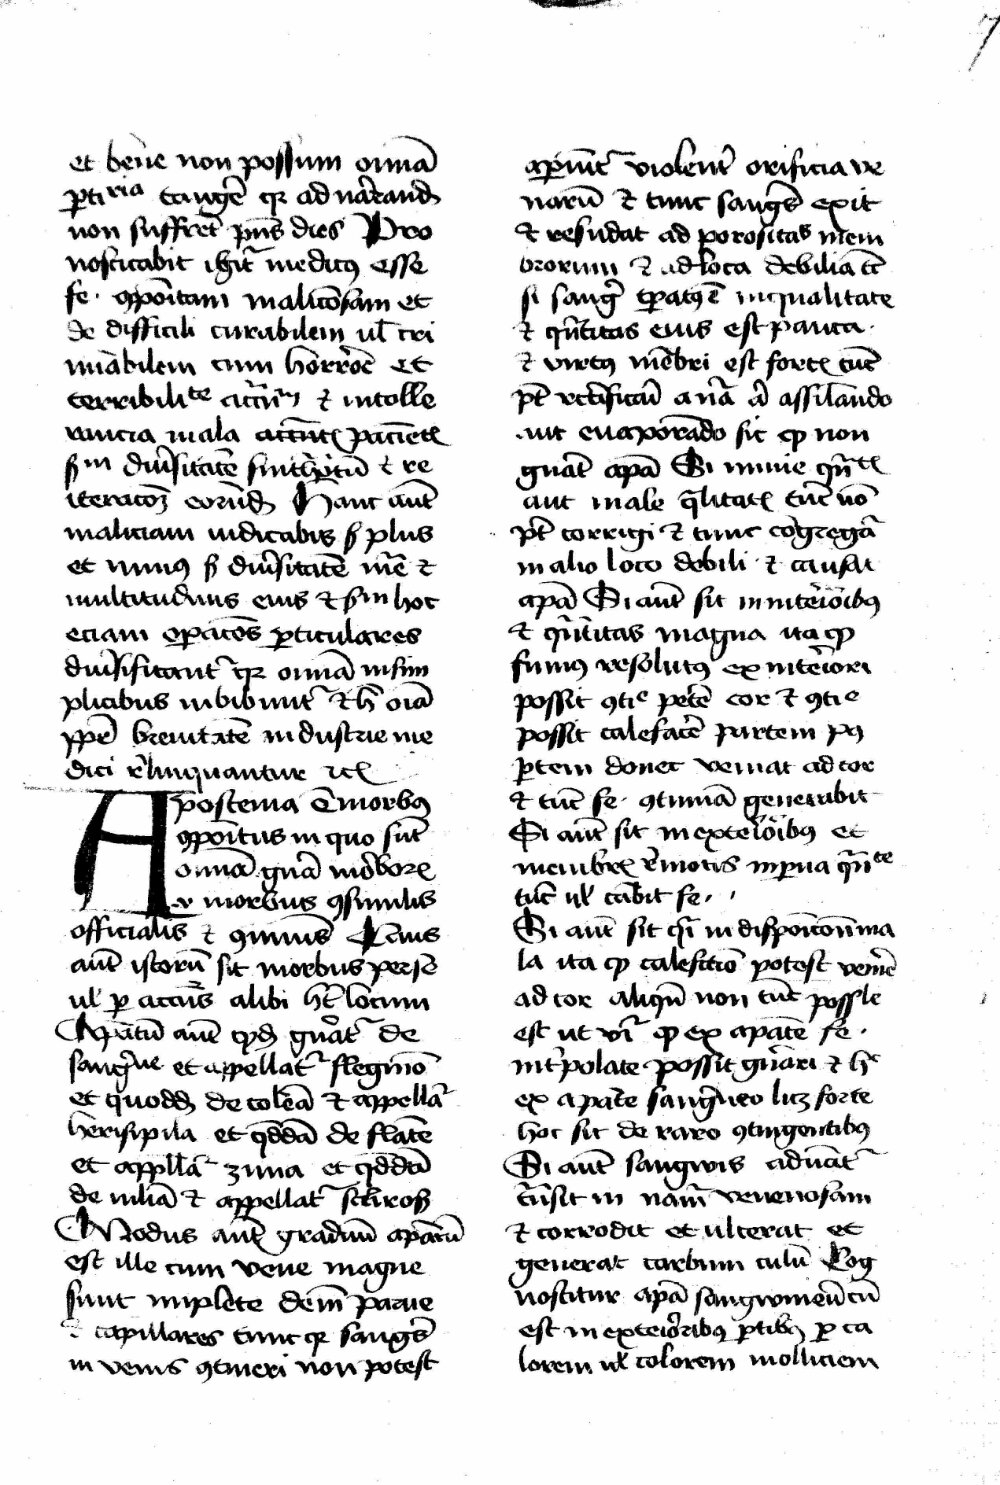 7
et bene non possum omnia
perticularia tangere quia ad narrandum
non sufficeret presens dies Pro
nosticabit igitur medicus esse
fe. compositam maliciosam et
de difficili curabilem vel cri
minabilem cum horrore et
terribilitate accidentium et intolle
rancia mala accidentis pacientis
secundum diversitatem sinthomatum et re
iteracionem eorundem Hanc autem
maliciam iudicabis secundum plus
et minus secundum diversitatem materie et
multitudinis eius et secundum hoc
eciam operaciones particulares
diversificantur quia omnia in sim
plicibus inbibuntur et hec omnia
propter brevitatem industrie me
dici relinquantur etc
Apostema est morbus
compositus in quo sunt
omnia genera morborum
morbus consimilis
officialis et communis
autem istorum sit morbus per se
vel per accidens alibi habet locum
Apostematum autem quoddam generatur de
sanguine et appellatur flegmon
et quoddam de colera et appellatur
herisipila et quoddam de flate
et appellatur zima et quoddam
de melancolia et appellatur sclirosis
Modus autem apostematum
est ille cum vene magne
sunt implete deinde parve
et capillares tunc quia sanguis
in venis contineri non potest
aperiuntur violenter orificia ve
narum et tunc sanguis exit
et resudat ad porositates mem
brorum et ad loca debilia etc
si sanguis temperatus est in qualitate
et quantitas eius est pauca
et virtus membri est fortis tunc
potest rectificari a natura assimilando
aut evaporando sic quod non
generatur apostema Si nimie quantitatis
aut male qualitatis tunc non
potest corrigi et tunc congregatur
in alio loco debili et causat
apostema Si autem sit in interioribus
et quantitas magna ita quod
fumus resolutus ex interiori
possit continue petere cor et continue
possit calefacere partem post
partem donec veniat ad cor
et tunc fe. continuam generabit
Si autem sit in exterioribus et
membris remotis in parva quantitate
tunc vel carebit fe.
Si autem sit quasi in disposicione ma
la ita quod calefactio potest venire
ad cor aliquando non tamen possibile
est ut videtur quod ex apostemate fe.
interpolate possit generari et hoc
ex apostemate sanguineo licet forte
hoc sit de raro contingentibus
Si autem sanguis aduratur
transit in naturam venenosam
et corrodit et ulcerat et
generat carbunculum Cog
noscitur apostema sangwineum cum
est in exterioribus partibus per ca
lorem vel colorem molliciem